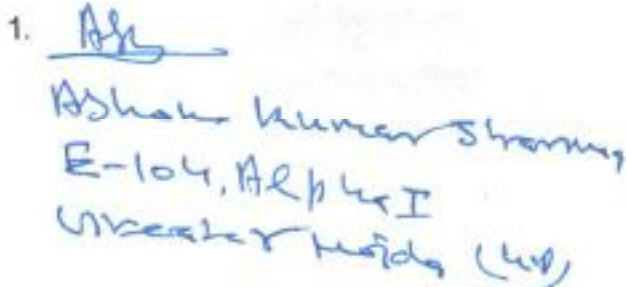 1.
Ashok Kumar Sharma,
E-104, Alpha I
Greater Noida (UP)